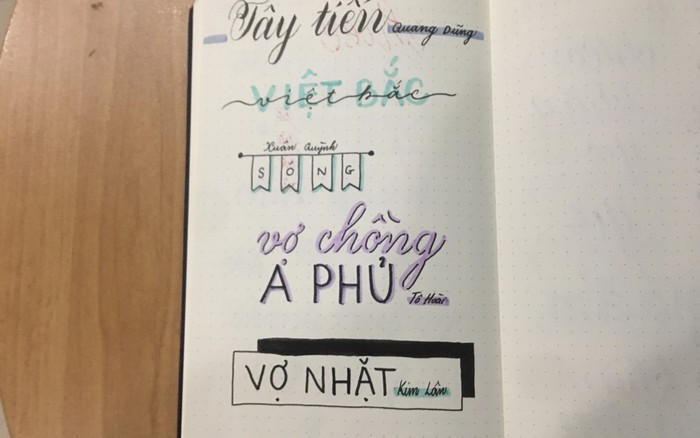 Tây tiến Quang Dũng
VIỆT BẮC
việt bắc
Xuân Quỳnh
SÓNG
vợ chồng
A PHỦ Tô Hoài
VỢ NHẶT Kim Lân